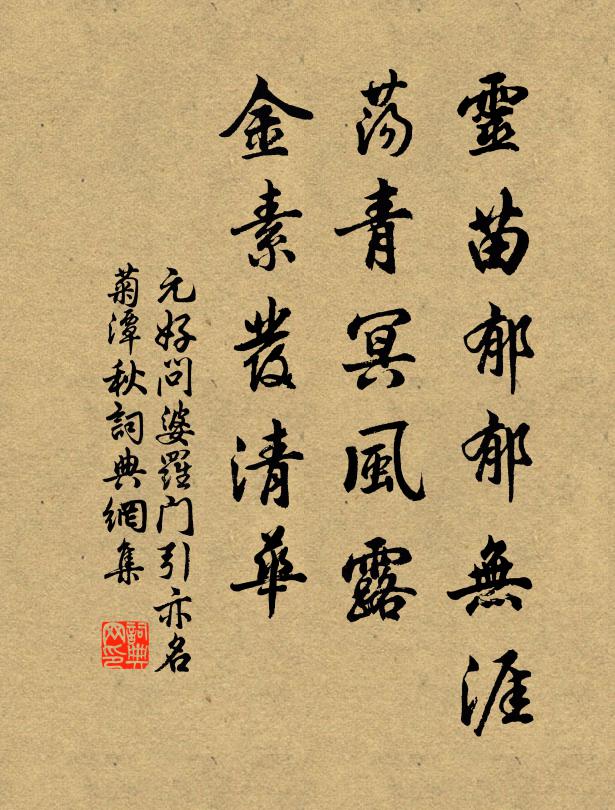 靈苗郁郁無涯
蕩青冥風露
金素發清華
元好问婆羅门引亦名
菊潭秋詞典網集
詞典网印